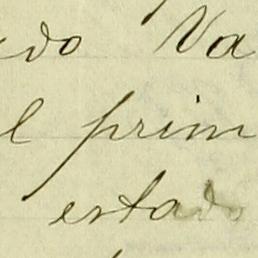 do Va
l prim
estado